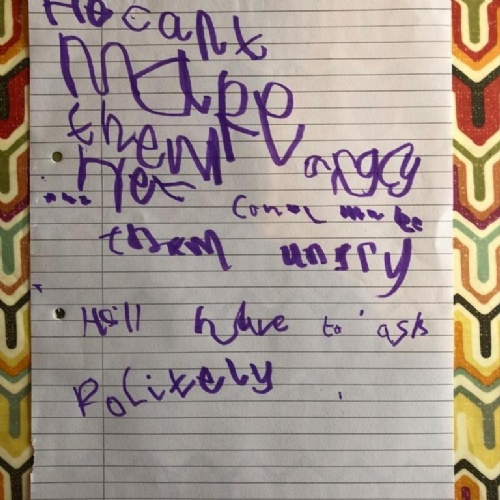 He cant
make
them angry
make
them
He'll have to ask
Politely